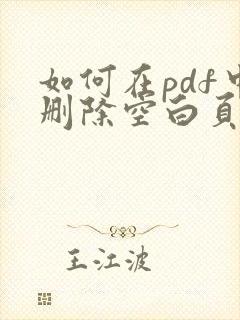 如何在pdf中
删除空白页
王江波